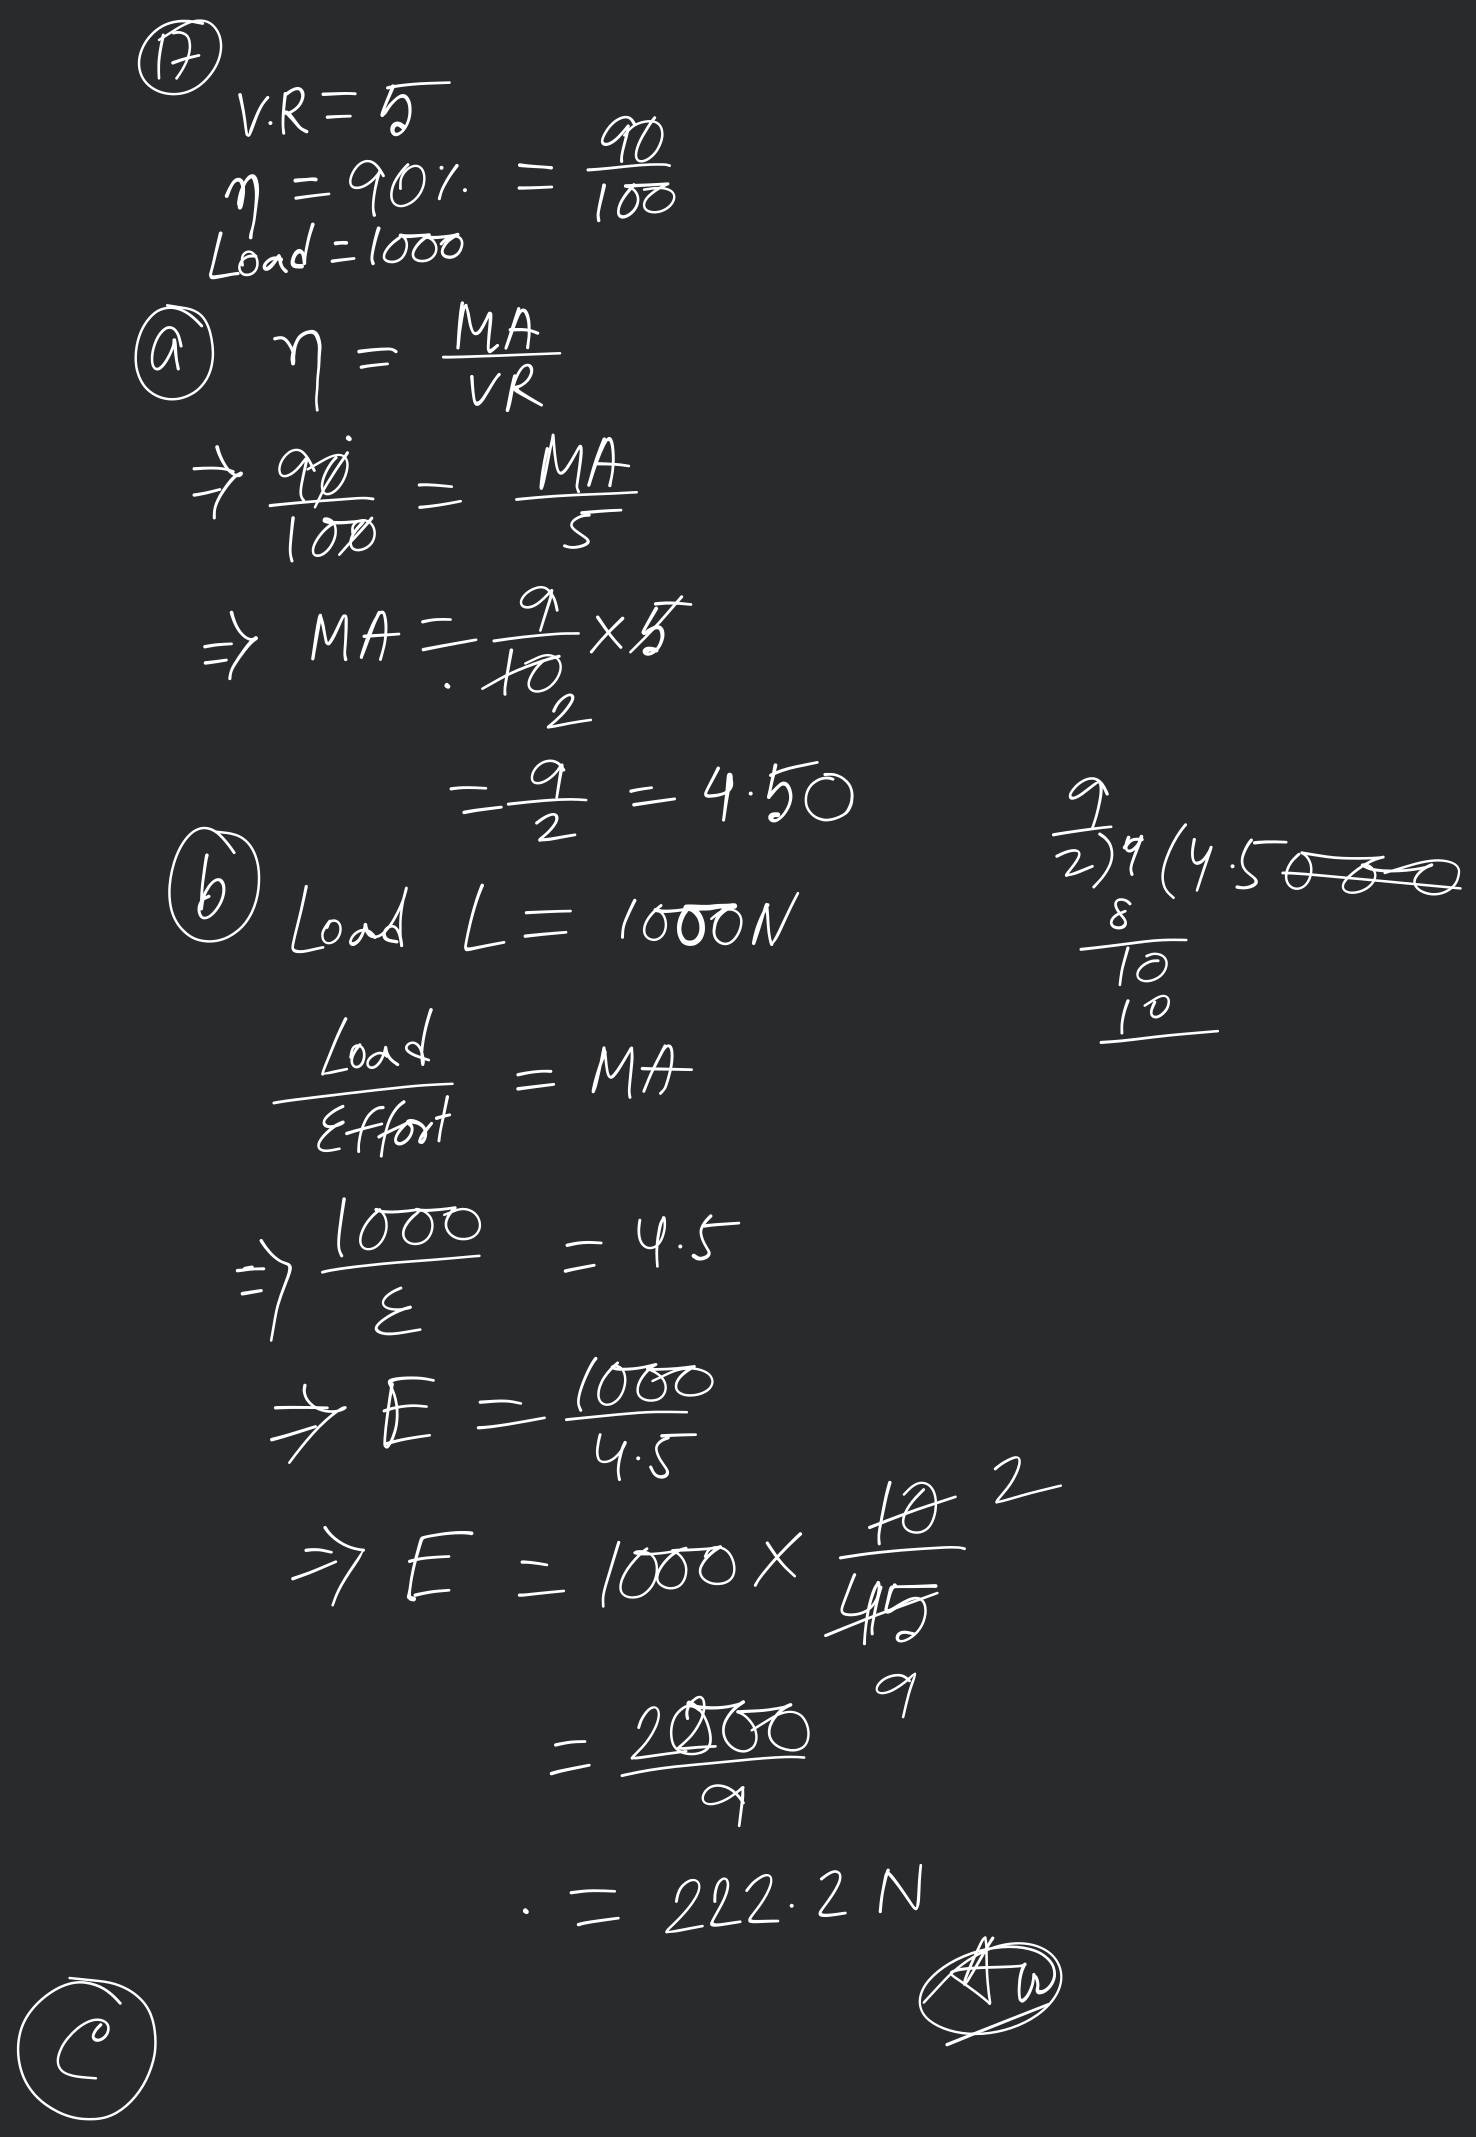 17
V.R = 5
η = 90% = 90/100
Load = 1000
a η = MA/VR
⇒ 90/100 = MA/5
⇒ MA = 9/10 × 5
2
= 9/2 = 4.50
9
2)9(4.5000
8
10
10
b Load L = 1000N
Load/Effort = MA
⇒ 1000/E = 4.5
⇒ E = 1000/4.5
⇒ E = 1000 × 10/45 2
9
= 2000/9
= 222.2 N
C